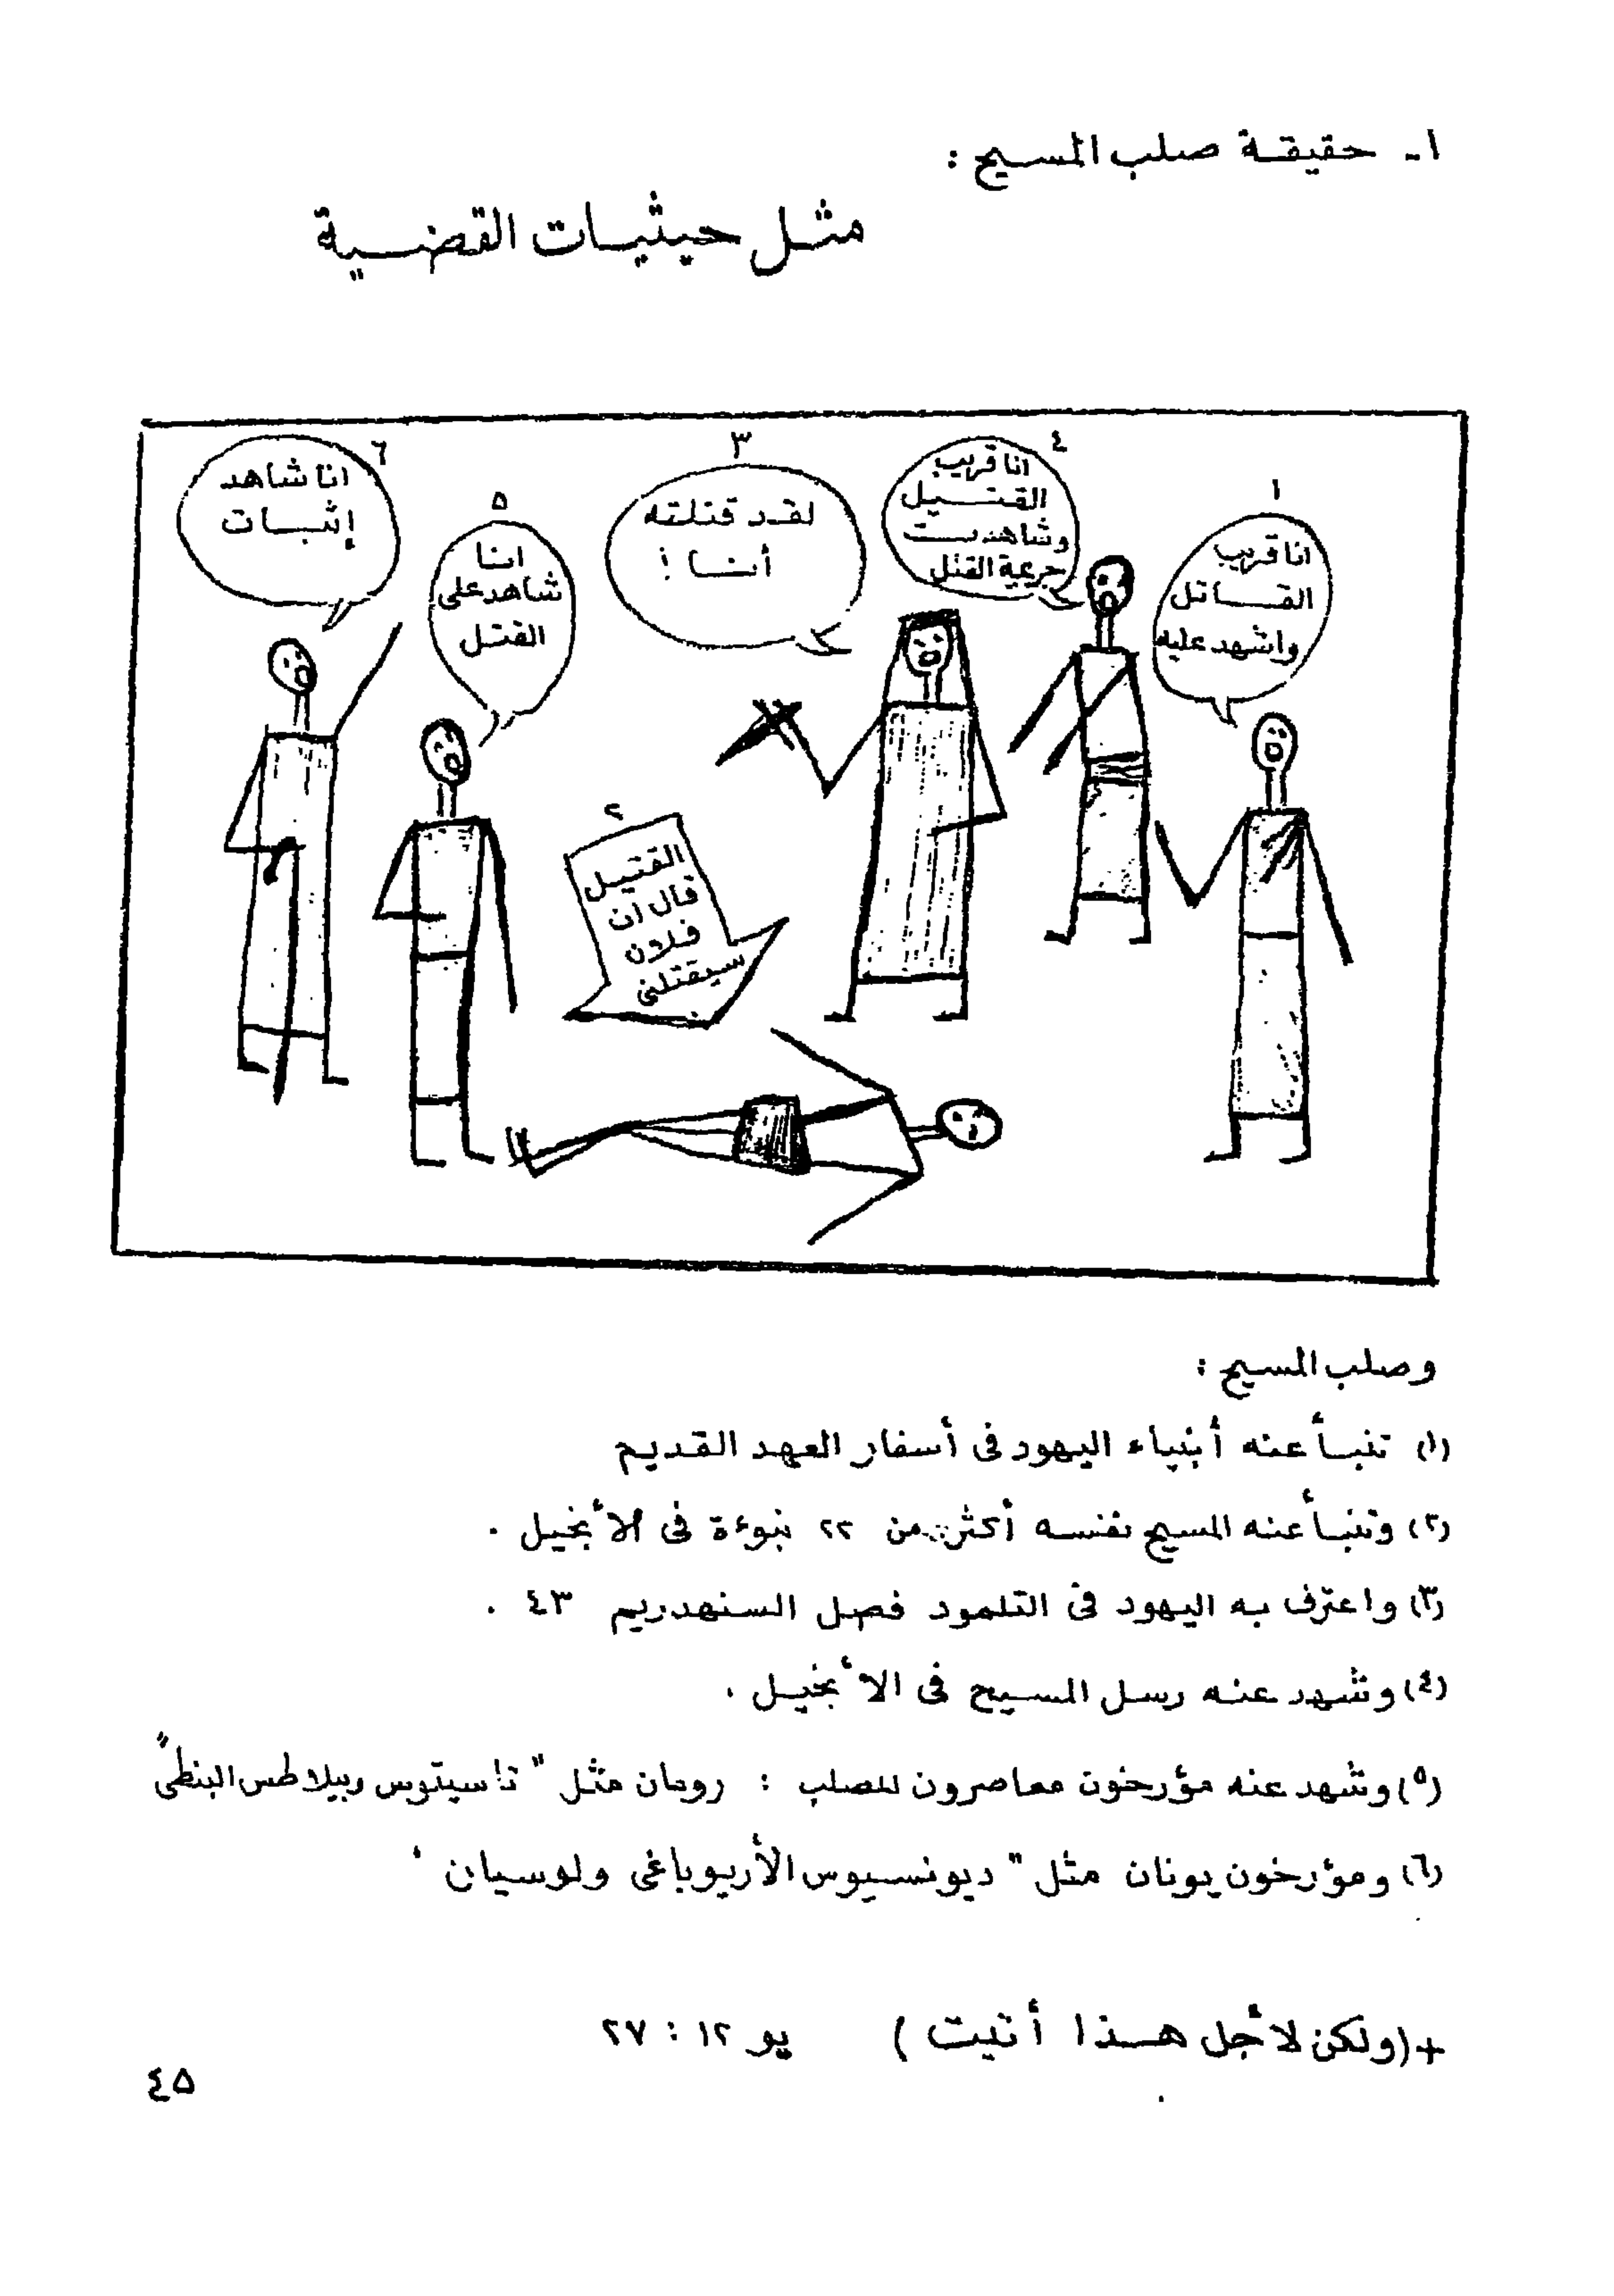 ١ـ حقيقة صلب المسيح :
مثل حيثيات القضية
١
انا قريب
القاتل
واشهد عليه
٢
القتيل
قال ان
فلان
سيقتلنى
٣
لقد قتلته
أنا !
٤
انا قريب
القتيل
وشاهدت
جريمة القتل
٥
انا
شاهد على
القتل
٦
انا شاهد
إثبات
وصلب المسيح :
(١) تنبأ عنه أنبياء اليهود فى أسفار العهد القديم
(٢) وتنبأ عنه المسيح نفسه أكثر من ٢٢ نبوءة فى الأنجيل .
(٣) واعترف به اليهود فى التلمود فصل السنهدريم ٤٣ .
(٤) وشهد عنه رسل المسيح فى الأنجيل .
(٥) وشهد عنه مؤرخون معاصرون للصلب : رومان مثل " تاسيتوس وبيلاطس البنطى "
(٦) ومؤرخون يونان مثل " ديونسيوس الأريوباغى ولوسيان '
+ (ولكن لأجل هذا أتيت ) يو ١٢ : ٢٧
٤٥